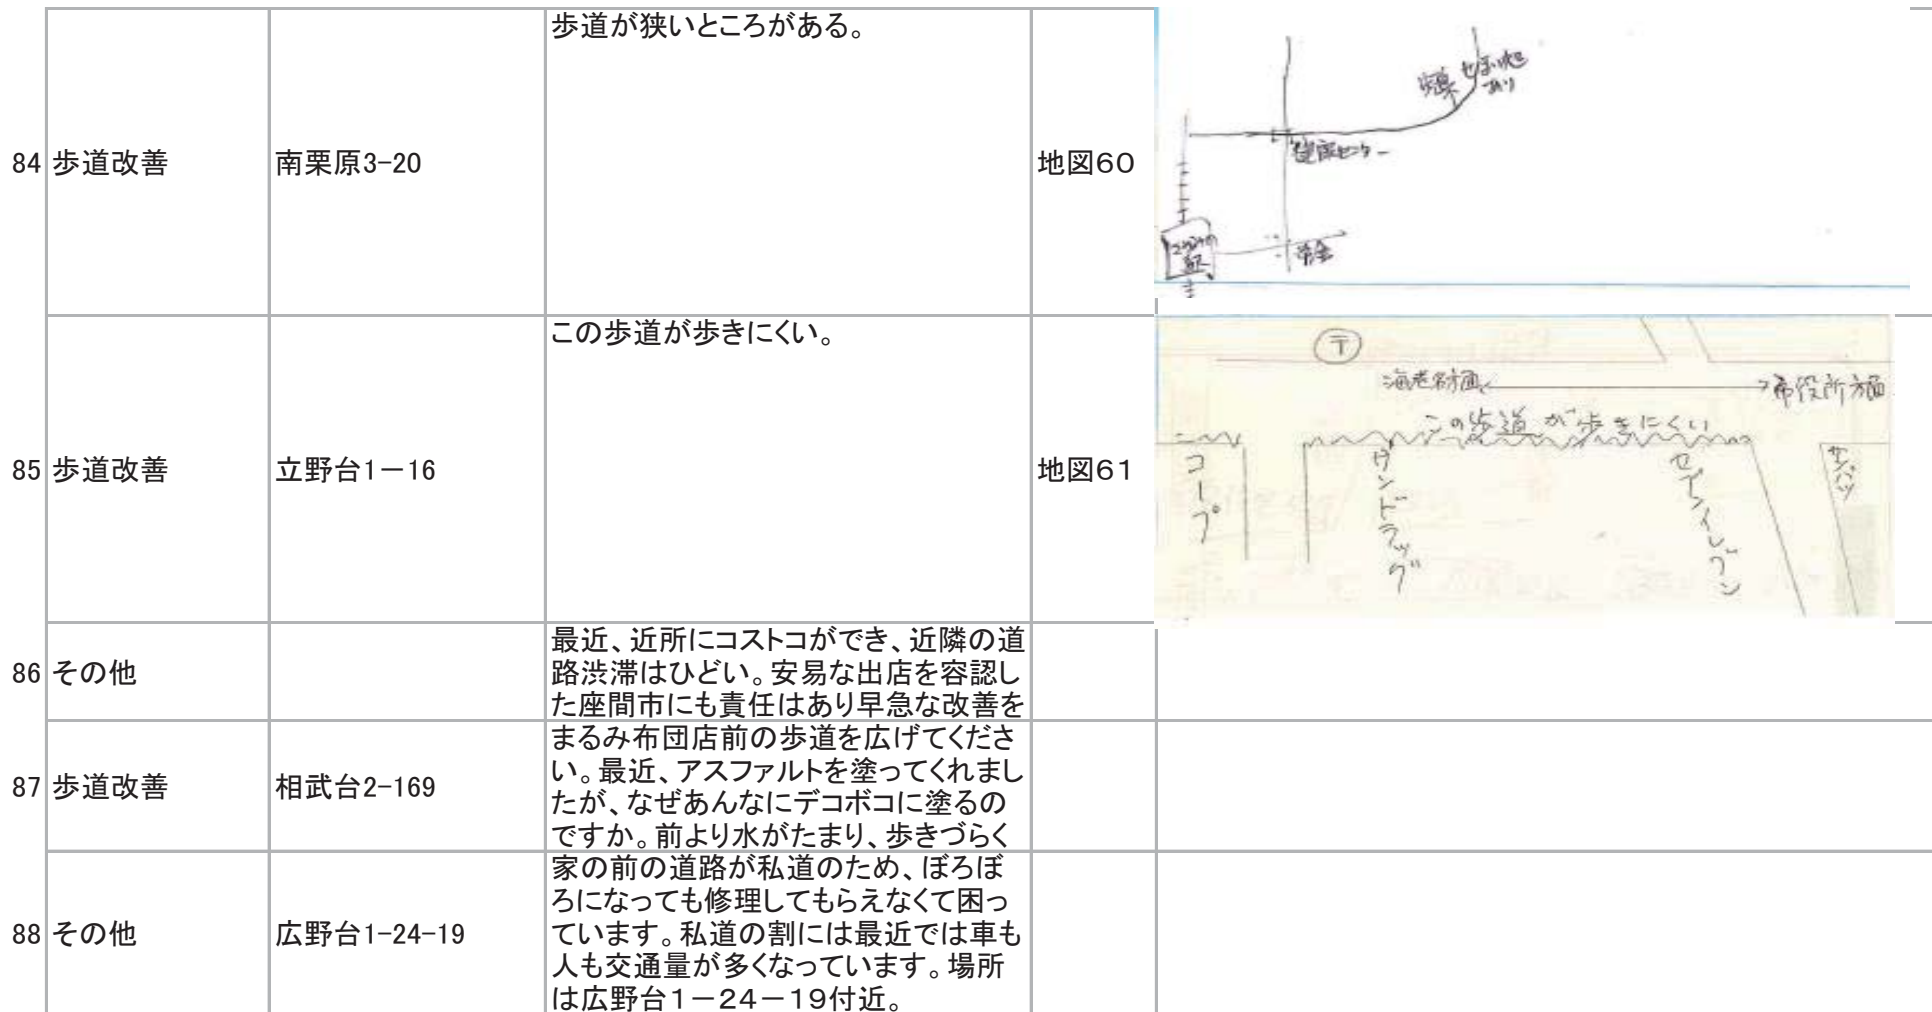 84 歩道改善 南栗原3-20 歩道が狭いところがある。 地図60
あり
センター
85 歩道改善 立野台1－16 この歩道が歩きにくい。 地図61
〒
海老名方面 市役所方面
この歩道が歩きにくい
コープ
サンドラッグ
セブンイレブン
サンパツ
86 その他
最近、近所にコストコができ、近隣の道
路渋滞はひどい。安易な出店を容認し
た座間市にも責任はあり早急な改善を
87 歩道改善 相武台2-169
まるみ布団店前の歩道を広げてくださ
い。最近、アスファルトを塗ってくれまし
たが、なぜあんなにデコボコに塗るの
ですか。前より水がたまり、歩きづらく
88 その他 広野台1-24-19
家の前の道路が私道のため、ぼろぼ
ろになっても修理してもらえなくて困っ
ています。私道の割には最近では車も
人も交通量が多くなっています。場所
は広野台1－24－19付近。